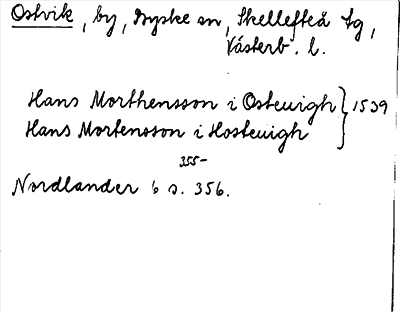 Ostvik, by, Byske sn, Skellefteå tg,
Västerb. l.
Hans Morthensson i Osteuigh } 1539
Hans Mortensson i Hosteuigh
355-
Nordlander 6 s. 356.